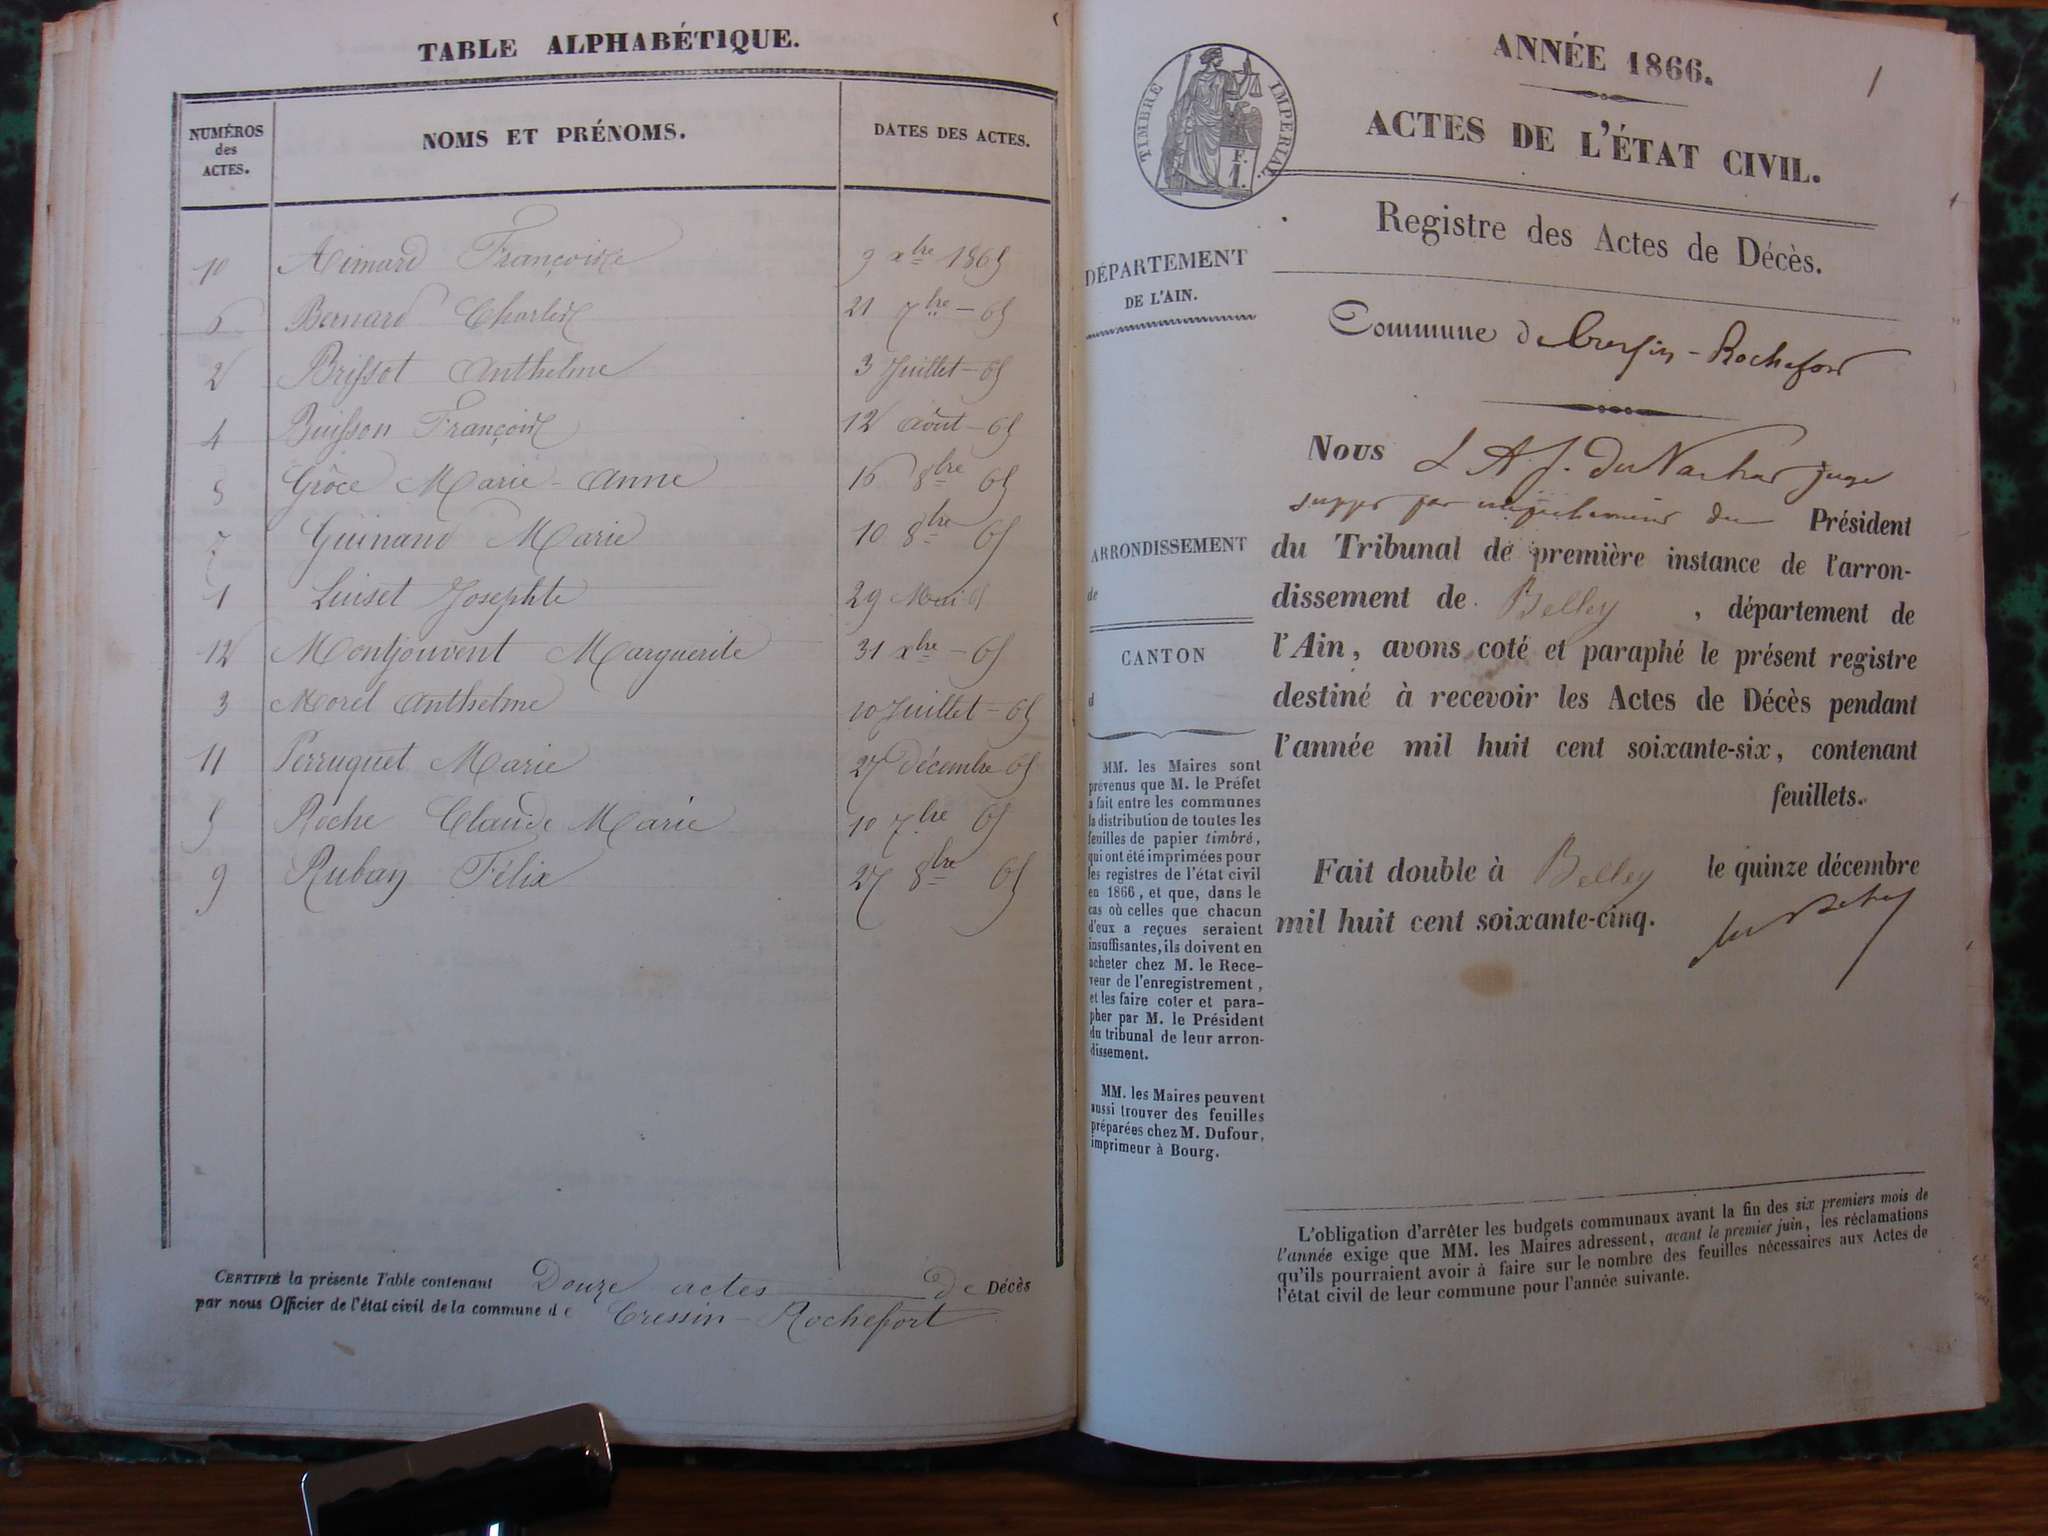 TABLE ALPHABÉTIQUE.
NUMÉROS
des
ACTES.
NOMS ET PRÉNOMS.
DATES DES ACTES.
10 Aimard Françoise 9 xbre 1865
6 Bernard Charles 21 7bre - 65
2 Brissot Anthelme 3 Juillet - 65
4 Buisson François 12 août - 65
Grôce Marie-Anne 16 8bre 65
7 Guinand Marie 10 8bre 65
1 Luiset Josephte 29 Mai
12 Montjouvent Marguerite 31 xbre - 65
3 Morel Anthelme 10 Juillet - 65
11 Perruquet Marie 27 décembre 65
5 Roche Claude Marie 10 7bre 65
9 Ruban Félix 27 8bre 65
CERTIFIÉ la présente Table contenant Douze actes de Décès
par nous Officier de l'état civil de la commune de Cressin-Rochefort
1
ANNÉE 1866.
TIMBRE IMPERIAL.
F.
1.
ACTES DE L'ÉTAT CIVIL.
Registre des Actes de Décès.
DÉPARTEMENT
DE L'AIN.
ARRONDISSEMENT
de
CANTON
d
MM. les Maires sont
prévenus que M. le Préfet
a fait entre les communes
la distribution de toutes les
feuilles de papier timbré,
qui ont été imprimées pour
les registres de l'état civil
en 1866, et que, dans le
cas où celles que chacun
d'eux a reçues seraient
insuffisantes, ils doivent en
acheter chez M. le Rece-
veur de l'enregistrement,
et les faire coter et para-
pher par M. le Président
du tribunal de leur arron-
dissement.
MM. les Maires peuvent
aussi trouver des feuilles
préparées chez M. Dufour,
imprimeur à Bourg.
Commune de Cressin-Rochefort
Nous L A J. du juge
supp par empêchement du Président
du Tribunal de première instance de l'arron-
dissement de Belley, département de
l'Ain, avons coté et paraphé le présent registre
destiné à recevoir les Actes de Décès pendant
l'année mil huit cent soixante-six, contenant
feuillets.
Fait double à Belley le quinze décembre
mil huit cent soixante-cinq.
L'obligation d'arrêter les budgets communaux avant la fin des six premiers mois de
l'année exige que MM. les Maires adressent, avant le premier juin, les réclamations
qu'ils pourraient avoir à faire sur le nombre des feuilles nécessaires aux Actes de
l'état civil de leur commune pour l'année suivante.